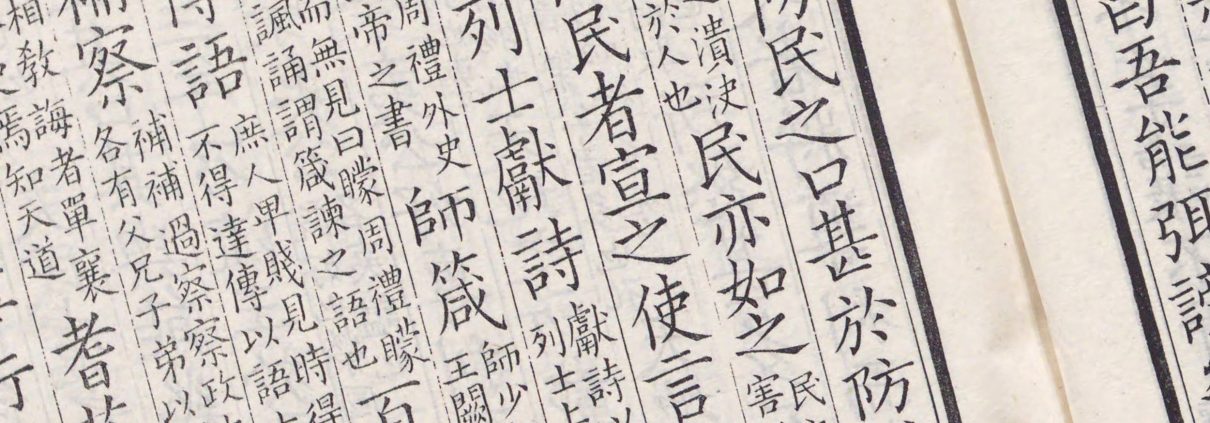 曰吾能弭謗
防民之口甚於防
潰決
於人也
民亦如之
民
害
民者宣之使言
列士獻詩
獻詩
列士
周禮外史
帝之書
師箴
師少
王闕
而無見曰矇周禮矇
諷誦謂箴諫之語也
百
語
庶人卑賤見時得
不得達傳以語
察
補補過察察政
各有父兄子弟以
相教誨者單襄
焉知天道
耆